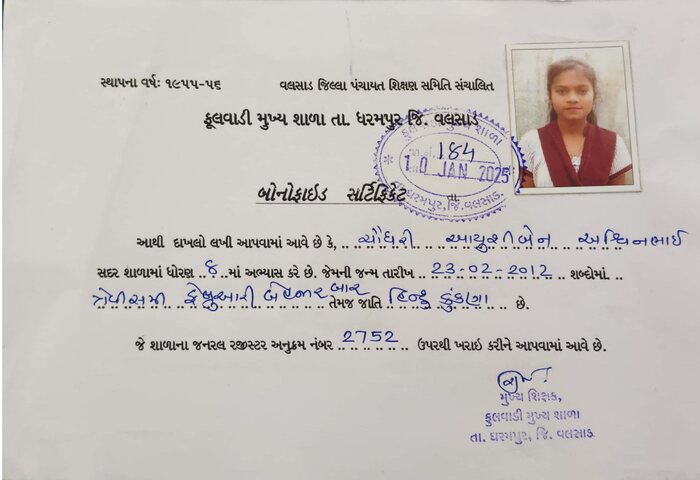 સ્થાપના વર્ષ: ૧૯૫૫-૫૬ વલસાડ જિલ્લા પંચાયત શિક્ષણ સમિતિ સંચાલિત
ફૂલવાડી મુખ્ય શાળા તા. ધરમપુર જિ. વલસાડ
ફુલવાડી મુખ્ય શાળા
184
10 JAN 2025
તા.
ધરમપુર,જિ.વલસાડ.
બોનોફાઇડ સર્ટિફિકેટ
આથી દાખલો લખી આપવામાં આવે છે કે, ચૌધરી આયુશીબેન અશ્વિનભાઈ
સદર શાળામાં ધોરણ ૪ માં અભ્યાસ કરે છે. જેમની જન્મ તારીખ 23-02-2012 શબ્દોમાં
ત્રેવીસમી ફેબ્રુઆરી બે હજાર બાર તેમજ જાતિ હિન્દુ કુંકણા છે.
જે શાળાના જનરલ રજીસ્ટર અનુક્રમ નંબર 2752 ઉપરથી ખરાઇ કરીને આપવામાં આવે છે.
મુખ્ય શિક્ષક,
ફુલવાડી મુખ્ય શાળા
તા. ધરમપુર, જિ. વલસાડ